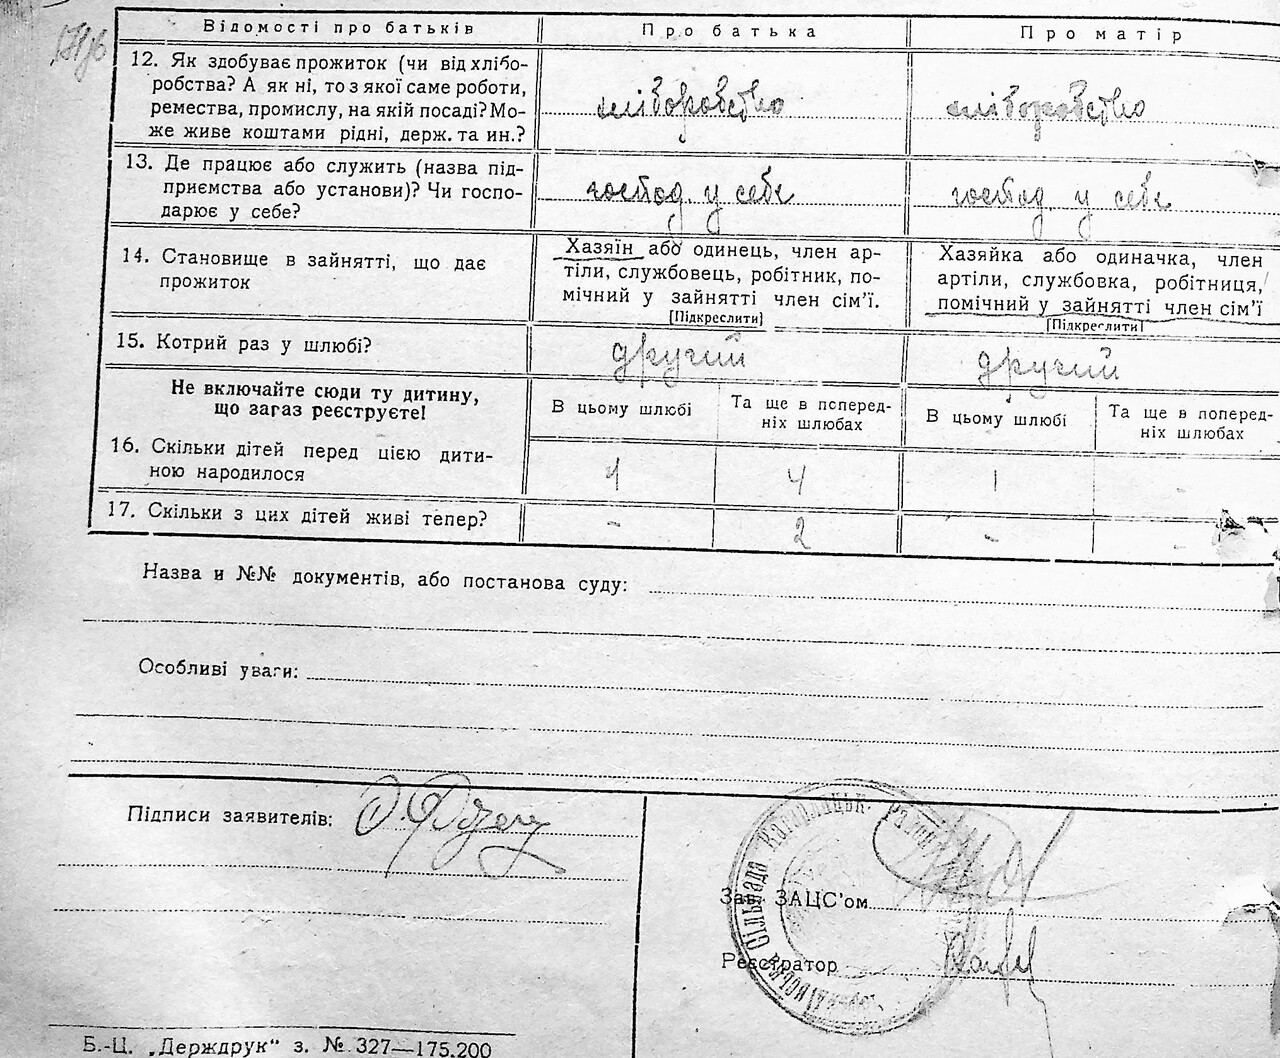 Відомості про батьків Про батька Про матір
12. Як здобуває прожиток (чи від хлібо-
робства? А як ні, то з якої саме роботи,
ремества, промислу, на якій посаді? Мо-
же живе коштами рідні, держ. та ин.?
хліборобство хліборобство
13. Де працює або служить (назва під-
приємства або установи)? Чи госпо-
дарює у себе?
господ. у себе господ. у себе
14. Становище в зайнятті, що дає
прожиток
Хазяїн або одинець, член ар-
тіли, службовець, робітник, по-
мічний у зайнятті член сім’ї.
[Підкреслити]
Хазяйка або одиначка, член
артіли, службовка, робітниця,
помічний у зайнятті член сім’ї
[Підкреслити]
15. Котрий раз у шлюбі? другий другий
Не включайте сюди ту дитину,
що загаз реєструєте!
В цьому шлюбі
Та ще в поперед-
ніх шлюбах
В цьому шлюбі
Та ще в поперед-
ніх шлюбах
16. Скільки дітей перед цією дити-
ною народилося
4 1 -
17. Скільки з цих дітей живі тепер? - 2 - -
Назва и №№ документів, або постанова суду:
Особливі уваги:
Підписи заявителів:
Сільрада Кагарлицьк. район
Зав. ЗАЦС’ом
Реєстратор
Б.-Ц. „Держдрук“ з. № 327—175.200